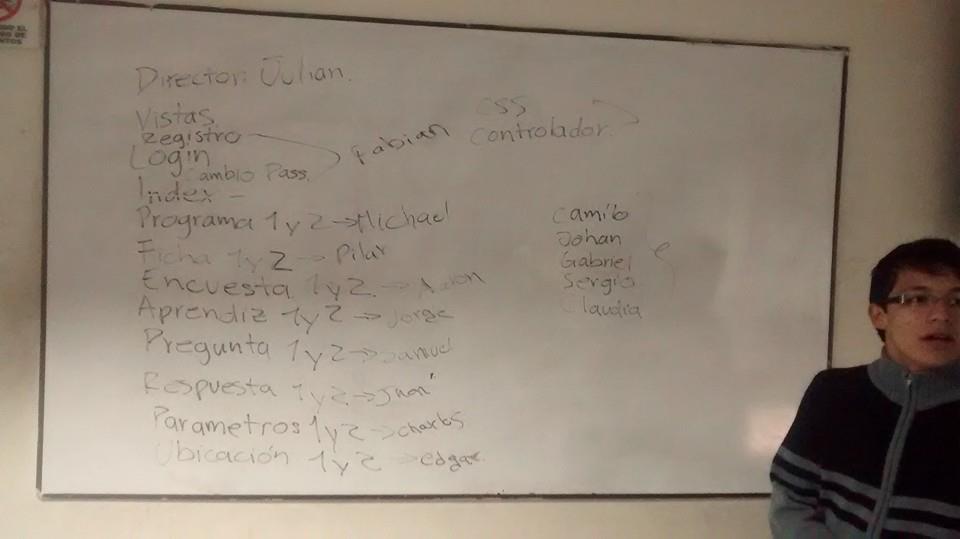 Director: Julian.
Vistas
Registro
Login
Cambio Pass.
Index -
Fabian
Programa 1 y 2 → Michael
Ficha 1 y 2 → Pilar
Encuesta 1 y 2 →
Aprendiz 1 y 2 → Jorge
Pregunta 1 y 2 → Samuel
Respuesta 1 y 2 → Juan
Parametros 1 y 2 → charles
Ubicación 1 y 2 → edgar
CSS
Controlador
Camilo
Johan
Gabriel
Sergio
Claudia